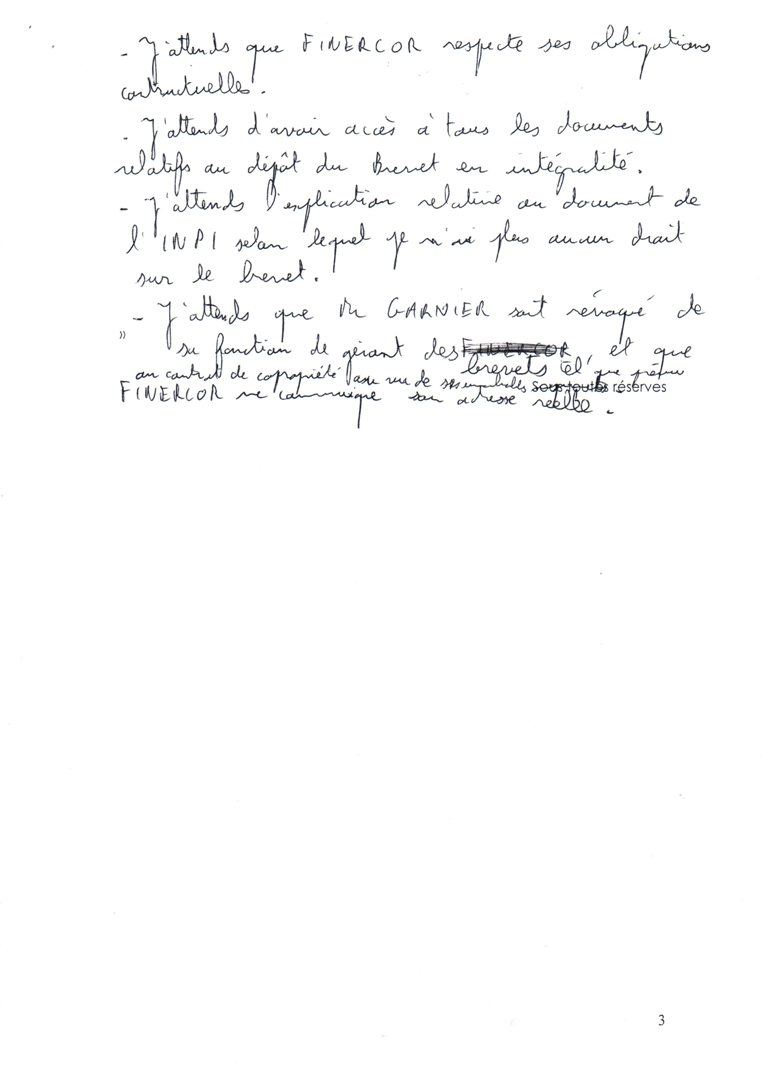 - J'attends que FINERCOR respecte ses obligations
contractuelles.
- J'attends d'avoir accès à tous les documents
relatifs au dépôt du Brevet en intégralité.
- J'attends l'explication relative au document de
l'INPI selon lequel je n'ai plus aucun droit
sur le brevet.
- J'attends que Mr GARNIER soit révoqué de
"
sa fonction de gérant des FINERCOR, et que
brevets tel que prévu
au contrat de copropriété de ses
Sous toutes réserves
FINERCOR me communique son adresse réelle.
3